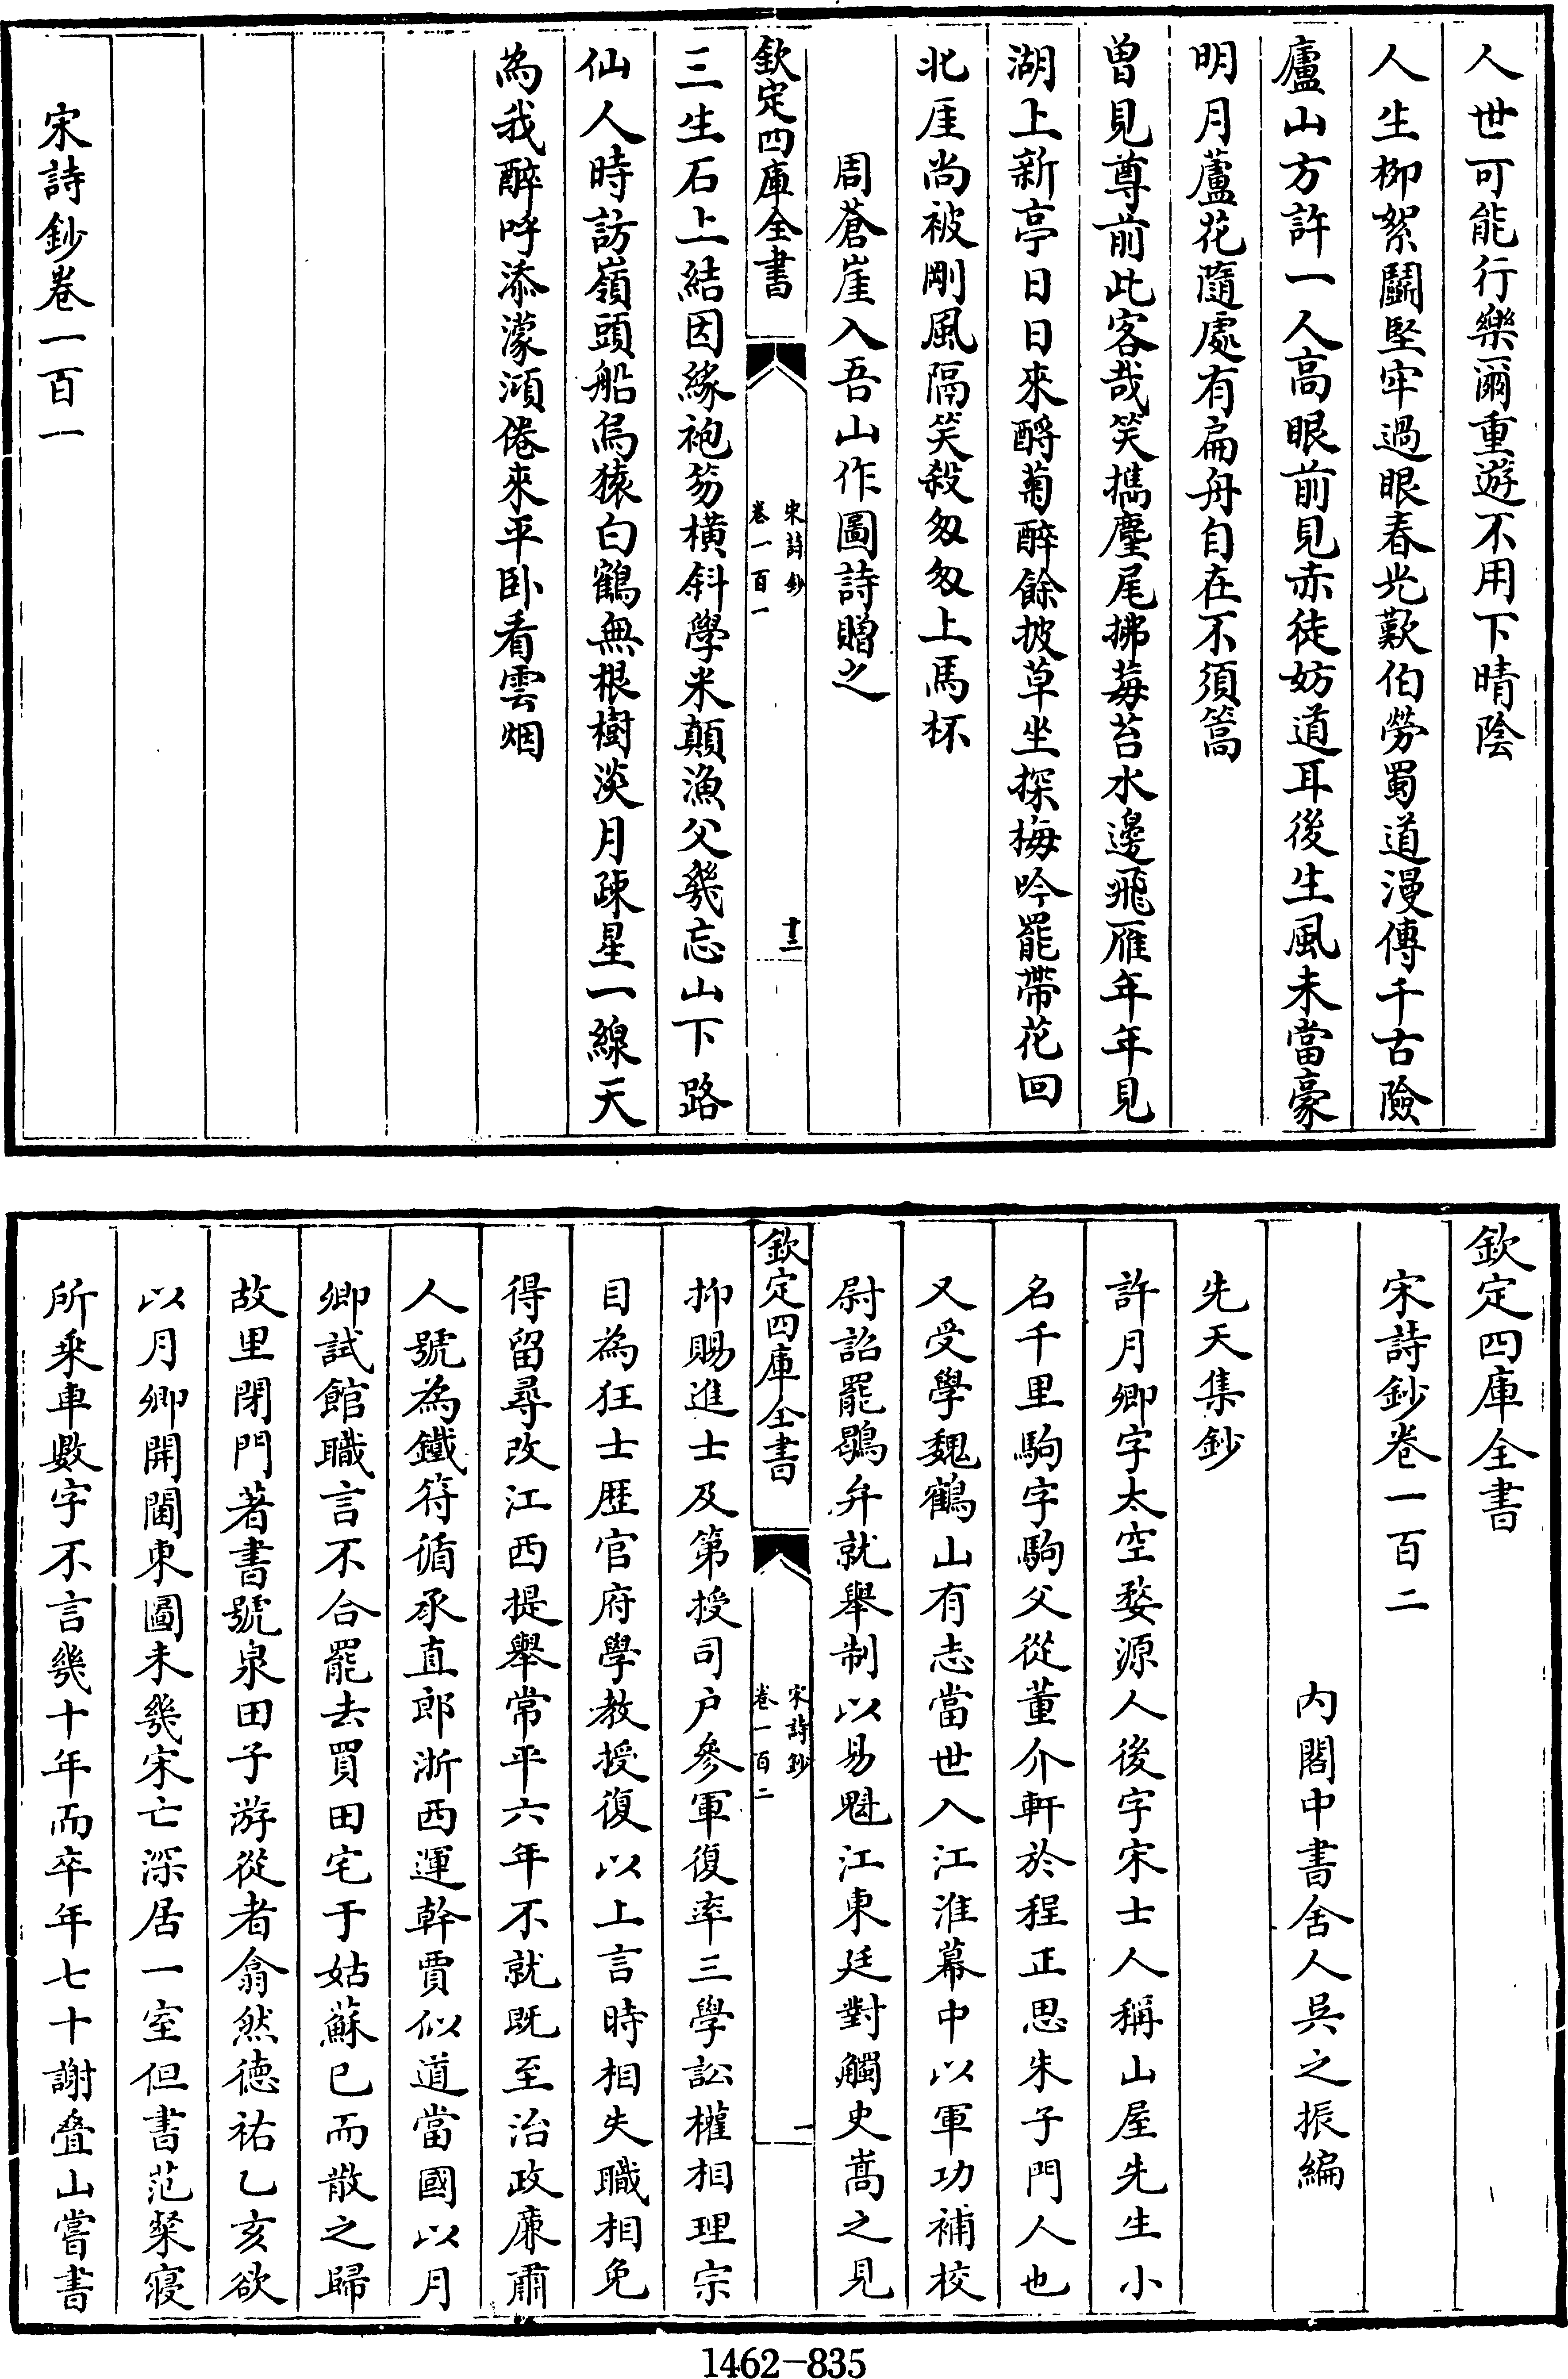 人世可能行樂爾重遊不用下晴陰
人生柳絮鬭堅牢過眼春光歎伯勞蜀道漫傳千古險
廬山方許一人高眼前見赤徒妨道耳後生風未當豪
明月蘆花隨處有扁舟自在不須篙
曾見尊前此客哉笑攜麈尾拂莓苔水邊飛雁年年見
湖上新亭日日來酹菊醉餘披草坐探梅吟罷帶花回
北厓尚被剛風隔笑殺匆匆上馬杯
周蒼崖入吾山作圖詩贈之
欽定四庫全書
宋詩鈔
卷一百一
十三
三生石上結因緣袍笏橫斜學米顛漁父幾忘山下路
仙人時訪嶺頭船烏猿白鶴無根樹淡月疎星一線天
為我醉呼添濛澒倦來平卧看雲烟
宋詩鈔卷一百一
欽定四庫全書
宋詩鈔卷一百二
内閣中書舍人吳之振編
先天集鈔
許月卿字太空婺源人後字宋士人稱山屋先生小
名千里駒字駒父從董介軒於程正思朱子門人也
又受學魏鶴山有志當世入江淮幕中以軍功補校
尉詔罷鶡弁就舉制以易魁江東廷對觸史嵩之見
欽定四庫全書
宋詩鈔
卷一百二
一
抑賜進士及第授司户參軍復率三學訟權相理宗
目為狂士歷官府學教授復以上言時相失職相免
得留尋改江西提舉常平六年不就既至治政廉肅
人號為鐵符循承直郎浙西運幹賈似道當國以月
卿試館職言不合罷去買田宅于姑蘇已而散之歸
故里閉門著書號泉田子游從者翕然德祐乙亥欲
以月卿開閫東圖未幾宋亡深居一室但書范粲寢
所乘車數字不言幾十年而卒年七十謝叠山嘗書
1462-835